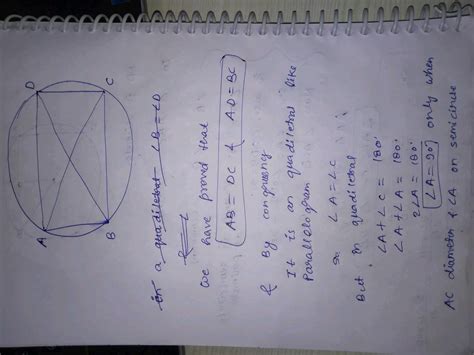 D
C
A
B
in a quadiletral ∠B = ∠D
We have proved that
AB = DC & AD = BC
& By congruency
It is an quadiletral like
Parallelogram
So ∠A = ∠C
But, In quadiletral
∠A + ∠C = 180°
∠A + ∠A = 180°
2∠A = 180°
∠A = 90° only when
AC diameter & ∠A on semicircle